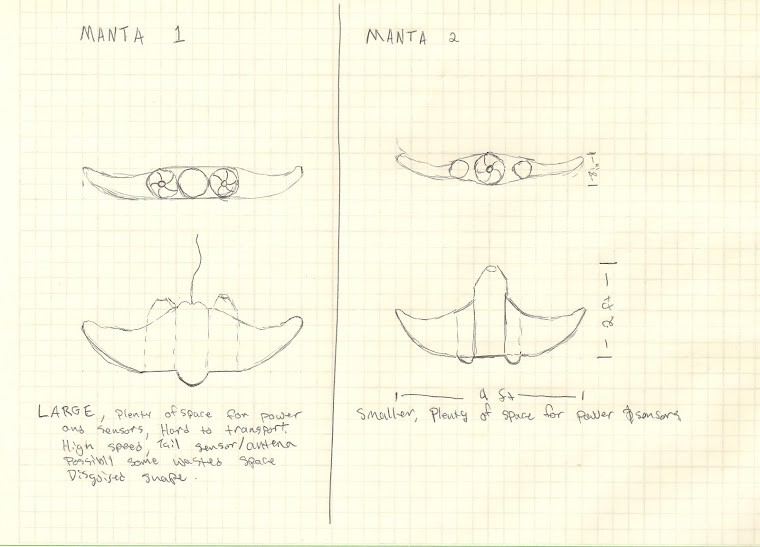 MANTA 1
LARGE, Plenty of space for power
and sensors, Hard to transport.
High speed, Tail sensor/antena
Possibly some wasted space
Disgoised shape.
MANTA 2
8in
2 ft
4 ft
Smaller, Plenty of space for power & sensors